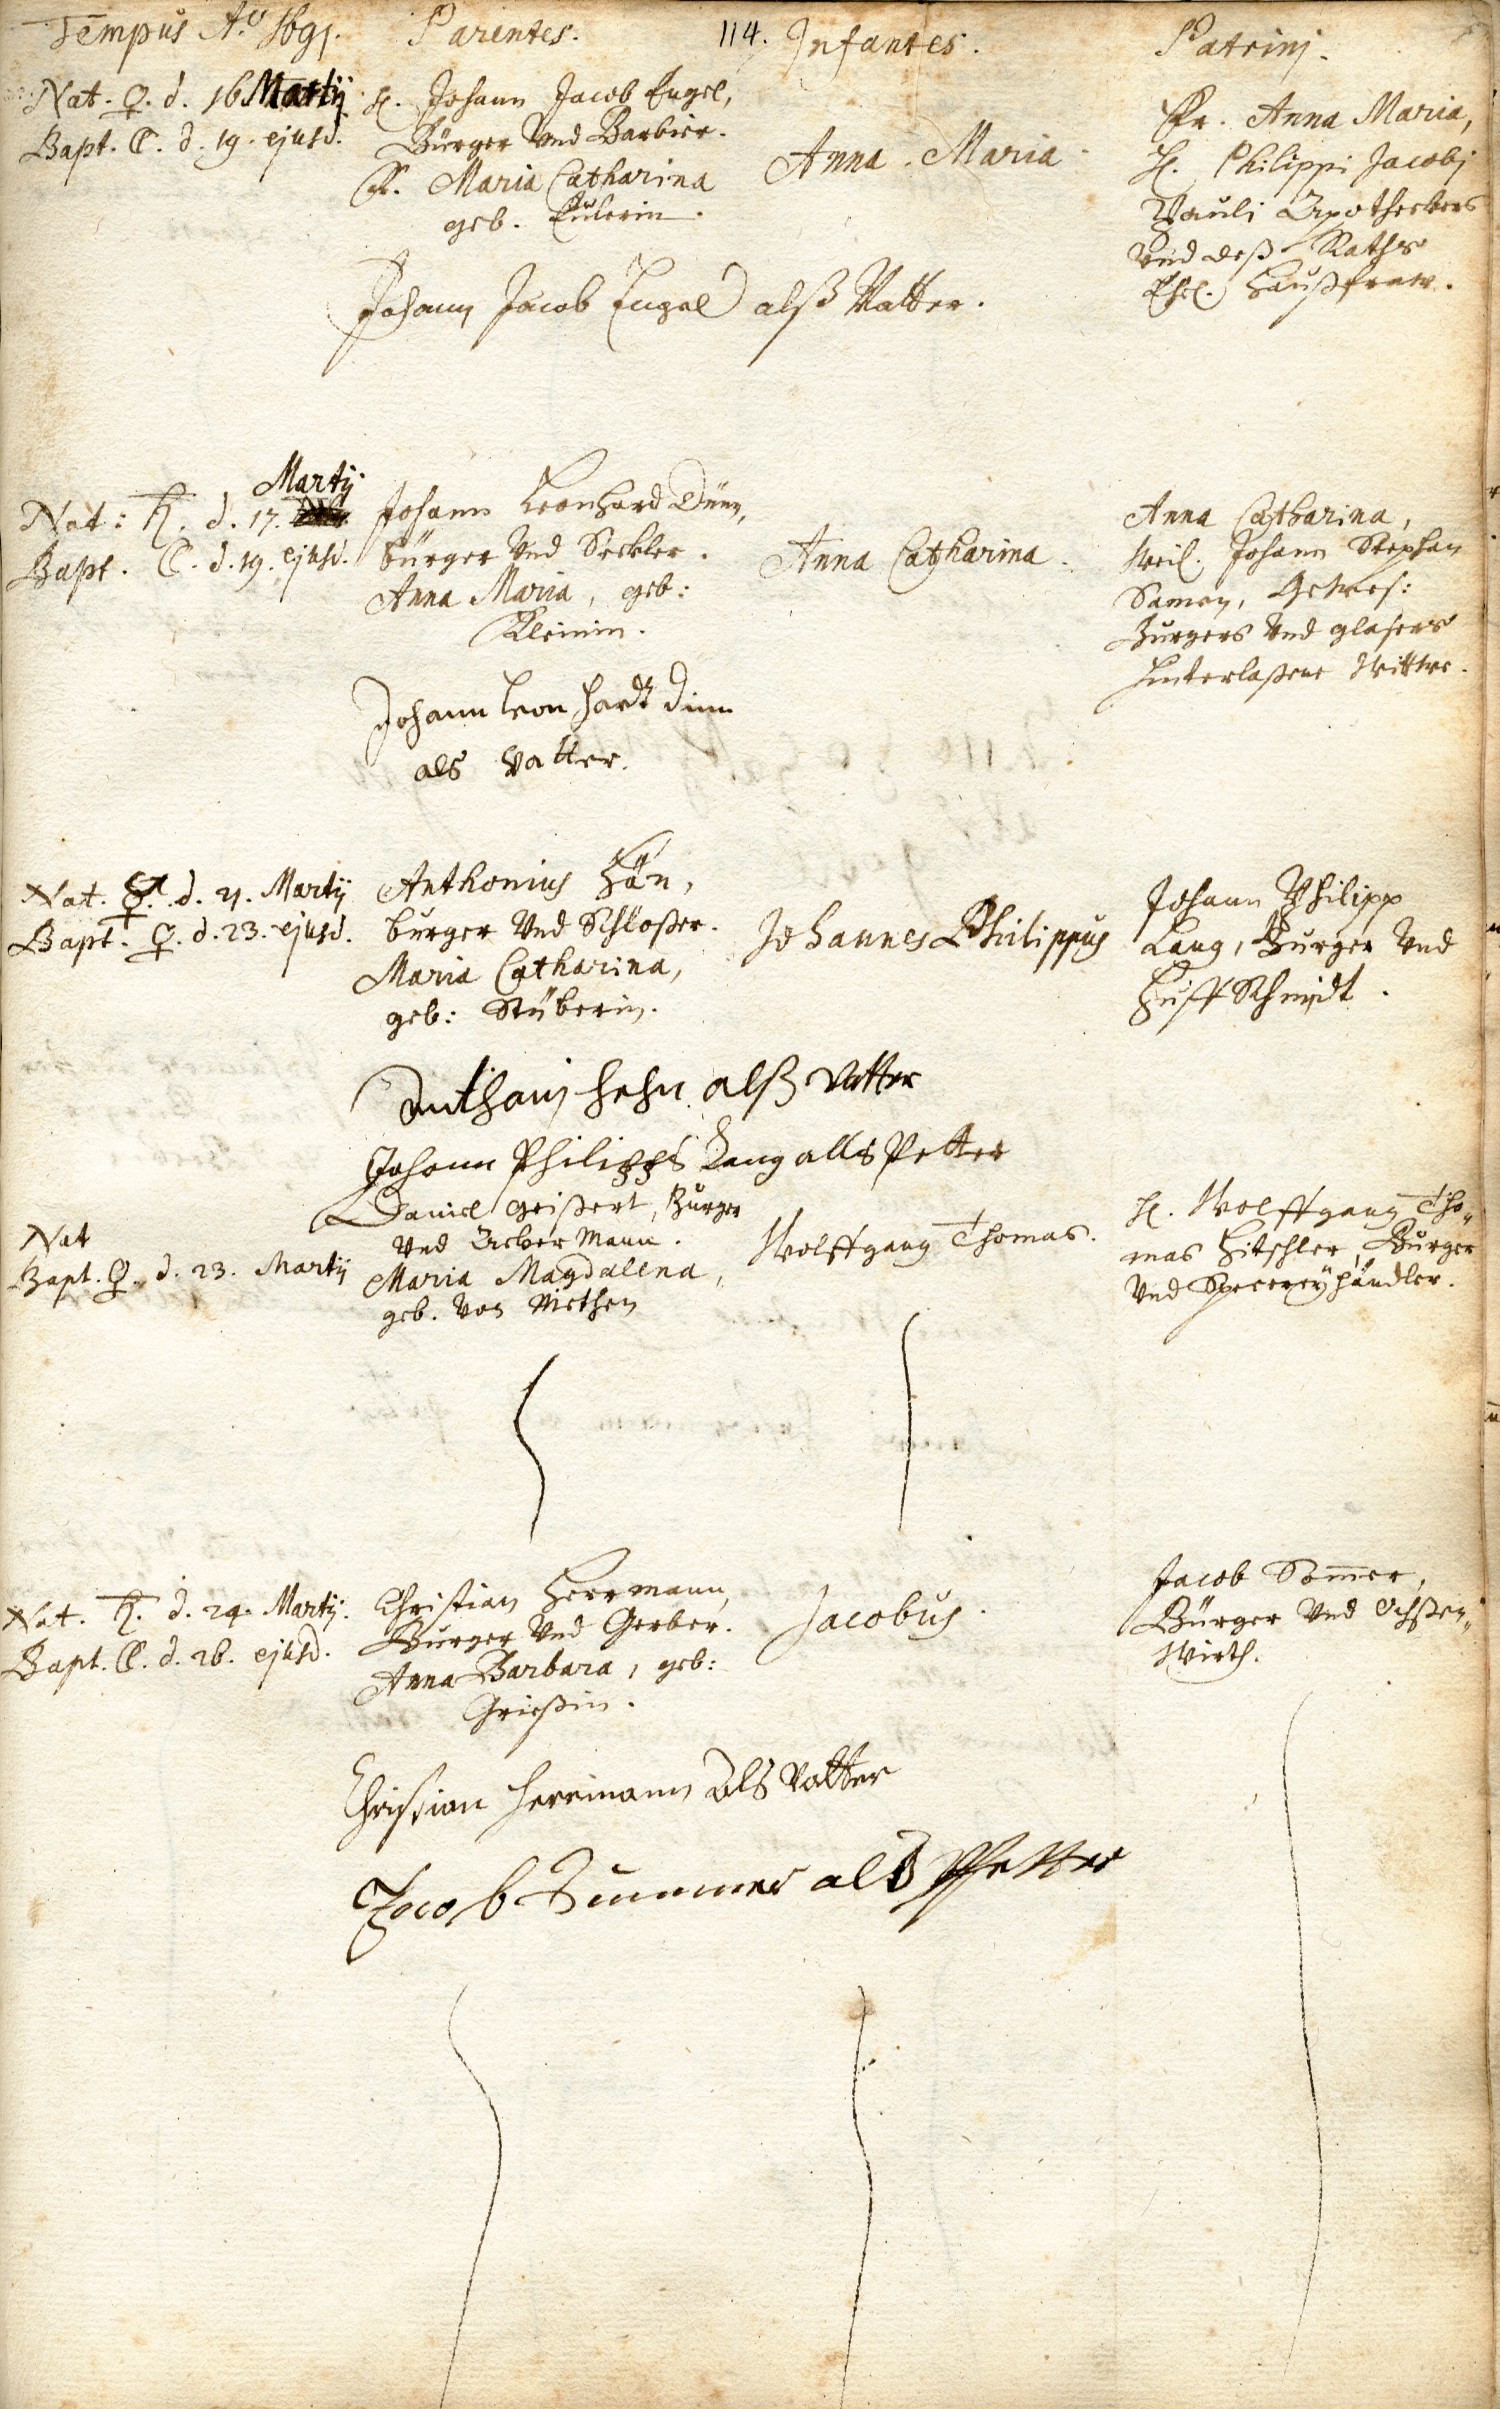 Tempus Aō. 1691. Parentes. 114. Infantes. Patrini.
Nat. ♀. d. 16 Martij
Bapt. ☾. d. 19. ejusd.
H. Johann Jacob Engel,
Bürger Vnd Barbier.
Fr. Maria Catharina
geb. Eulerin.
Anna Maria
Fr. Anna Maria,
H. Philippi Jacobj
Pauli Apotheckers
Vnd deß Raths
Ehel. Haußfraw.
Johann Jacob Engel alß Vatter.
Martij
Nat: ♄. d. 17.
Bapt. ☾. d. 19. ejusd.
Johann Leonhard Dünn,
bürger Vnd Seckler.
Anna Maria, geb:
Kleinin.
Anna Catharina.
Anna Catharina,
Weil. Johann Stephan
Samon, Gewes:
Burgers Vnd glasers
hinterlaßene Wittwe.
Johann leonhardt dinn
als Vatter.
Nat. d. 21. Martij
Bapt. ♀. d. 23. ejusd.
Anthonius Hän,
burger Vnd Schloßer.
Maria Catharina,
geb: Stüberin.
Johannes Philippus
Johann Philipp
Lang, Burger Vnd
Huffschmidt.
Anthonj hehn alß Vatter
Johann Philipps Lang alls Petter
Nat
Bapt. ♀. d. 23. Martij
Daniel Geißert, Burger
Vnd Ackermann.
Maria Magdalena,
geb. Von Niethen
Wolffgang Thomas.
H. Wolffgang Tho-
mas Hitschler, Burger
Vnd Specereyhändler.
Nat. ♄. d. 24. Martij.
Bapt. ☾. d. 26. ejusd.
Christian Herrmann,
Burger Vnd Gerber.
Anna Barbara, geb:
Grießin.
Jacobus.
Jacob Som̅er,
Bürger Vnd Ochßen-
Wirth.
Christian herrmann als Vatter
Jacob Summer als Pfetter